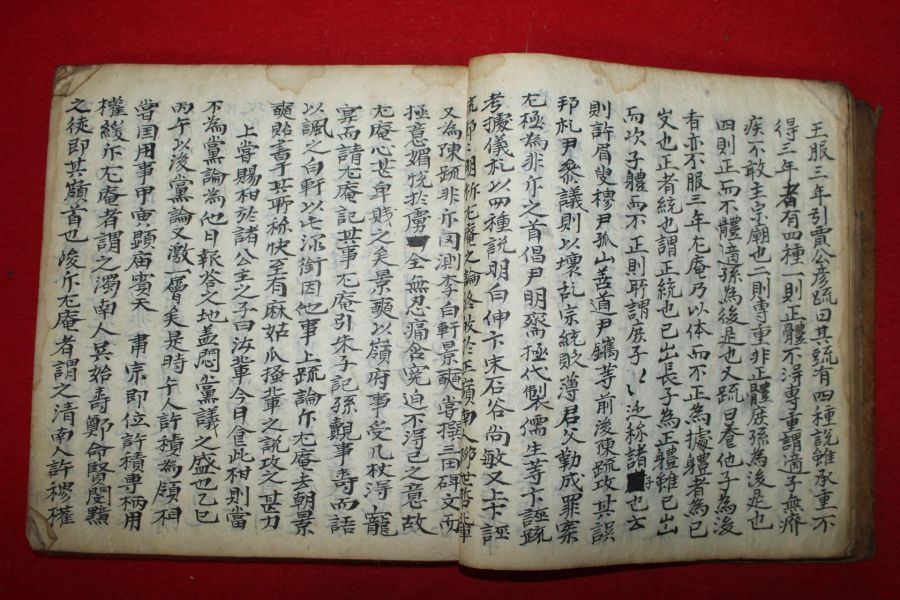 王服三年引賈公彦疏曰其疏有四種說雖承重不
得三年者有四種一則正體不得專重謂適子無癈
疾不敢主宗廟也二則專重非正體庶孫為後是也
四則正而不體適孫為後是也又疏曰養他子為後
者亦不服三年尤庵乃以体而不正為據體者為已
出也正者統也謂正統也已出長子為正體雖已出
而次子體而不正則所謂庶子 述称諸子也云
則許眉叟穆尹孤山善道尹鑴等前後陳疏攻其誤
邦札尹參議則以壞乱宗統貶薄君父勤成罪案
尤極為非斥之首倡尹明齋極代製儒生等卞誣疏
考據儀札以四種說明白伸卞末石谷尚敏又上卞誣
又為陳疏非斥 李白軒景奭嘗撰三田碑文而
極意媚悅於虜 全無忍痛含寃迫不得已之意故
尤庵心甚卑賤之矣景奭以嶺府事受几杖淂寵
寘而請尤庵記其事尤庵引朱子記孫覿事壽而
以諷之白軒以此㳄銜因他事上疏論斥尤庵去朝景
奭貽書于其所称快至有麻姑爪搔輩之說攻之甚力
上嘗賜柑於諸公主之子曰汝輩今日食此柑則當
不為黨論為他日報答之地盖悶黨議之盛也乙巳
丙午以後黨論又激一層矣是時午人許積為領相
當国用事甲寅顕庙賓天 肅宗即位許積專柄用
權緩斥尤庵者謂之濁南人吳始壽鄭命賢閔黯
之徒即其巔首也峻斥尤庵者謂之清南人許穆權